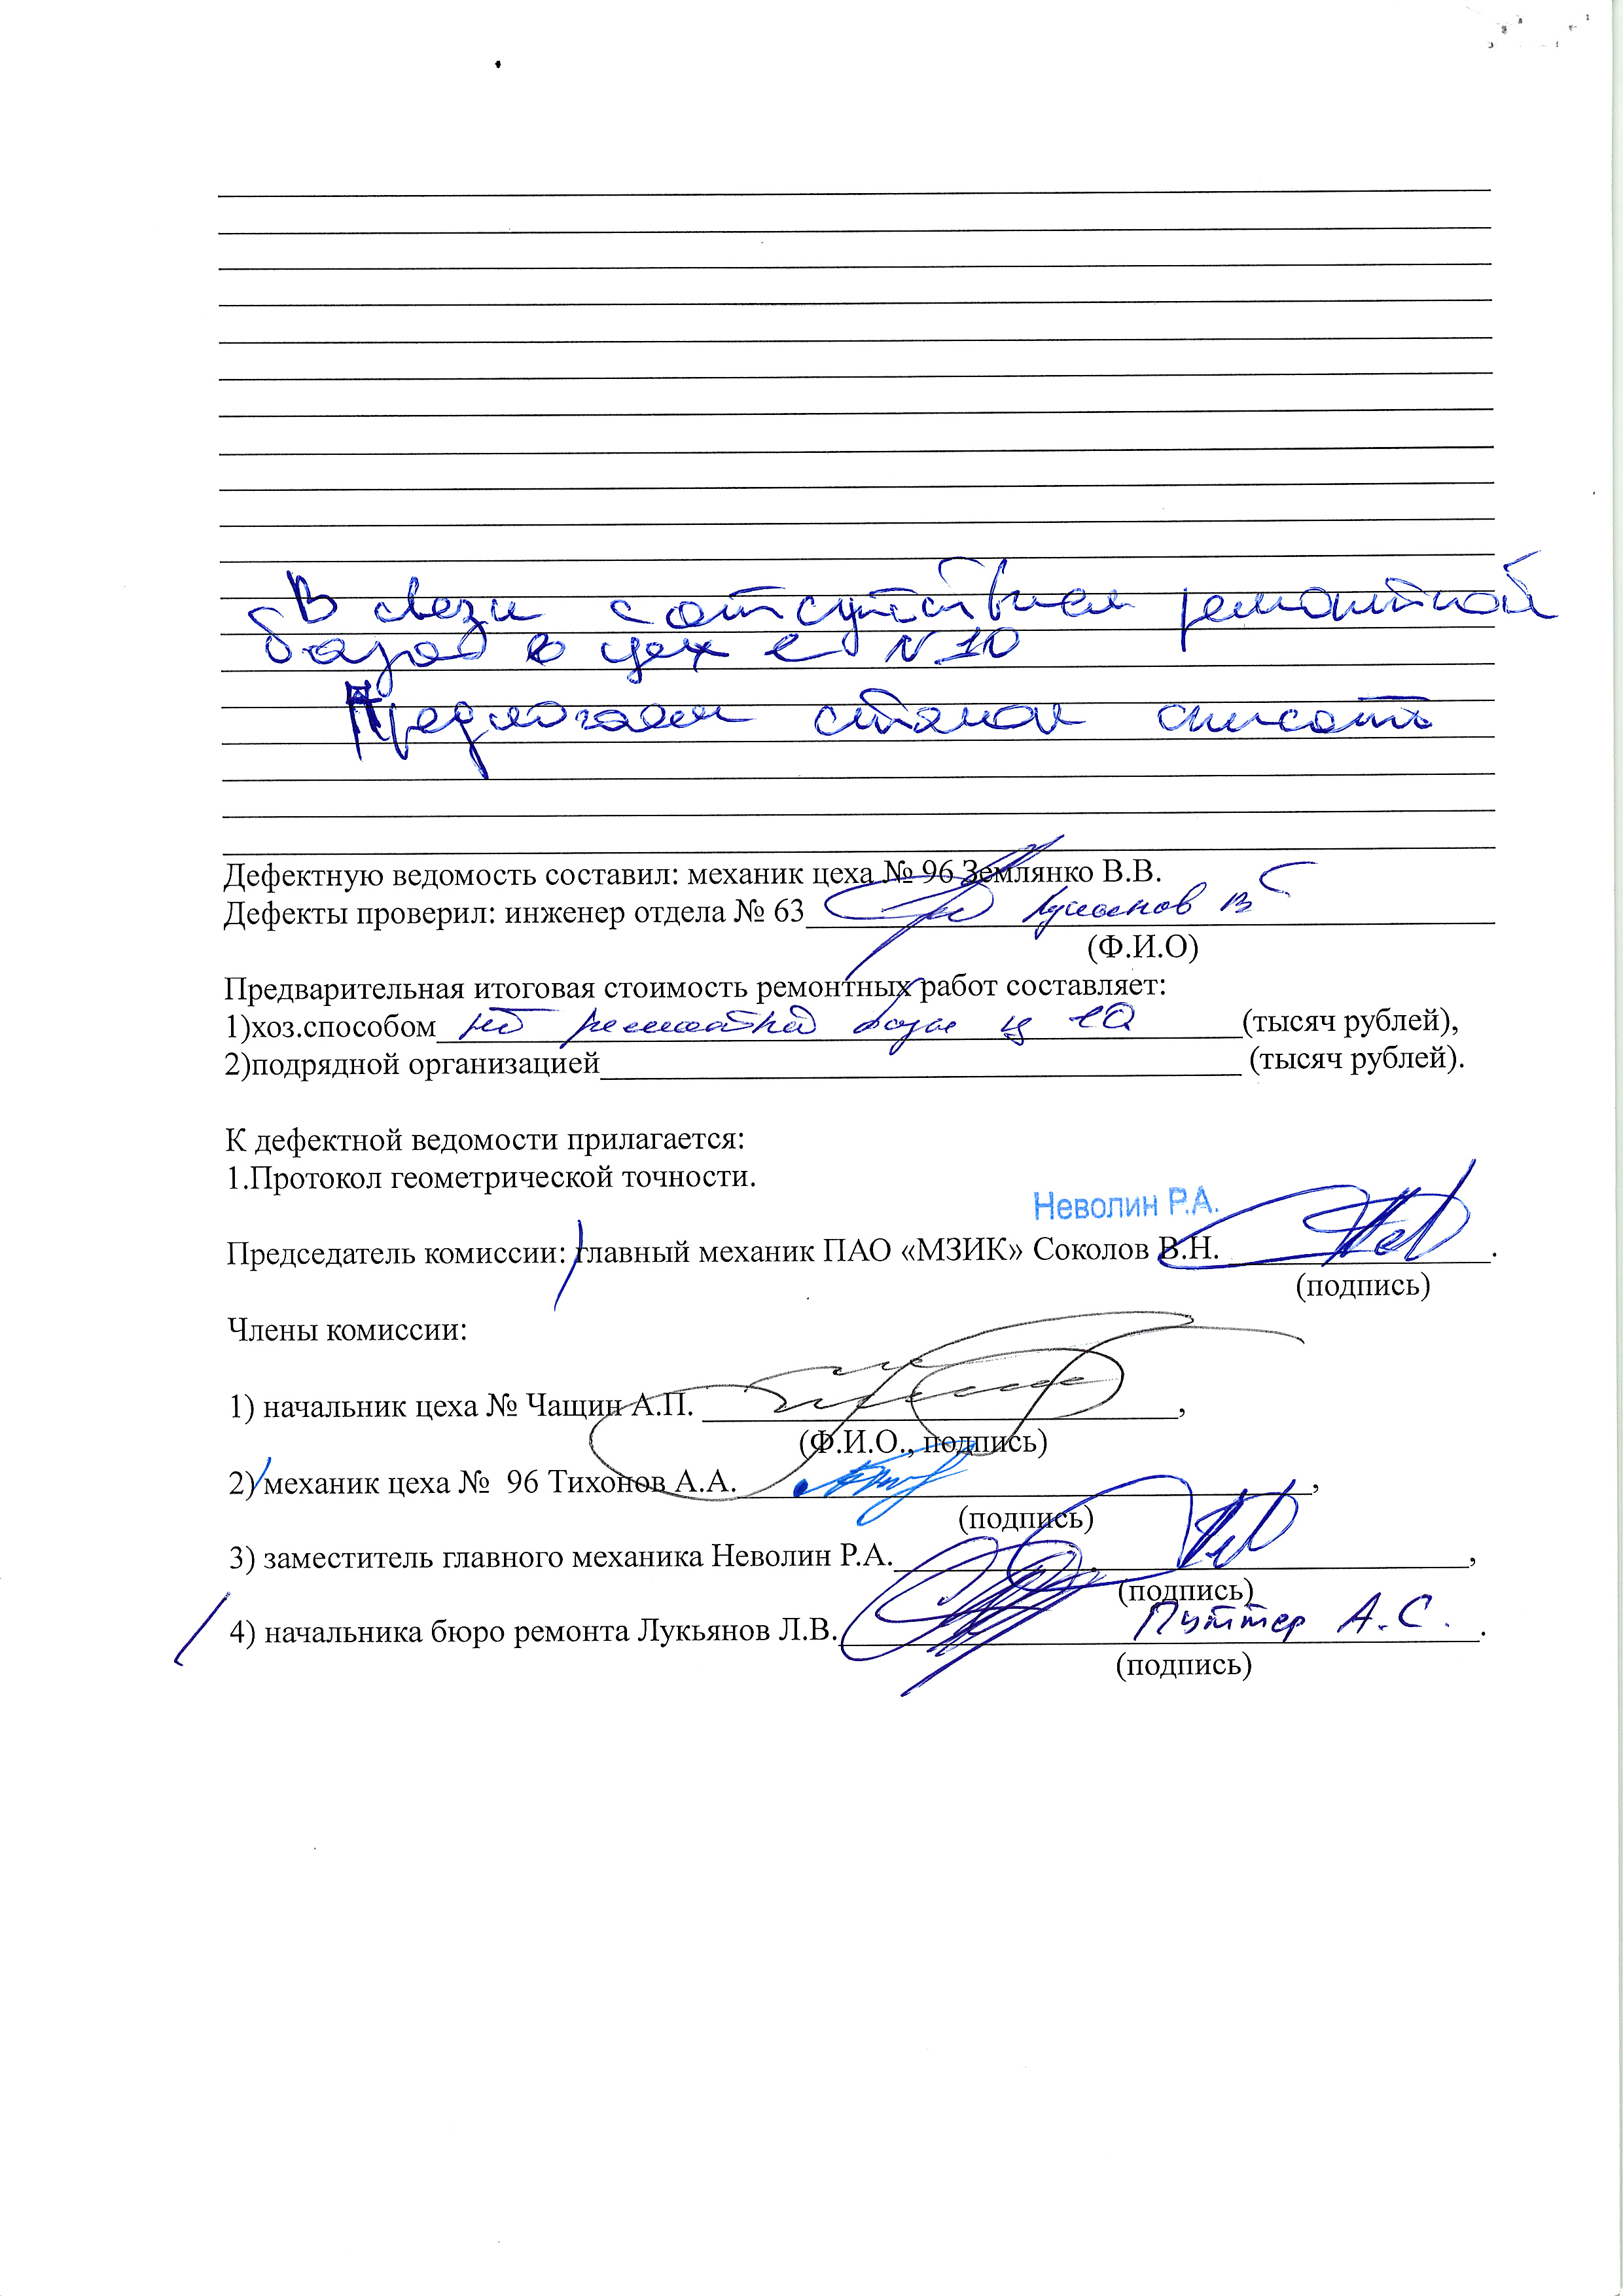 В связи с отсутствием ремонтной
базой в цехе N 10
Предлогаем станок списать
Дефектную ведомость составил: механик цеха № 96 Землянко В.В.
Дефекты проверил: инженер отдела № 63
(Ф.И.О)
Предварительная итоговая стоимость ремонтных работ составляет:
1)хоз.способом нет ремонтной базы ц 10 (тысяч рублей),
2)подрядной организацией (тысяч рублей).
К дефектной ведомости прилагается:
1.Протокол геометрической точности.
Неволин Р.А.
Председатель комиссии: главный механик ПАО «МЗИК» Соколов В.Н.
(подпись)
Члены комиссии:
1) начальник цеха № Чащин А.П.
(Ф.И.О., подпись)
2) механик цеха № 96 Тихонов А.А.
(подпись)
3) заместитель главного механика Неволин Р.А.
(подпись)
4) начальника бюро ремонта Лукьянов Л.В. Путтер А.С.
(подпись)